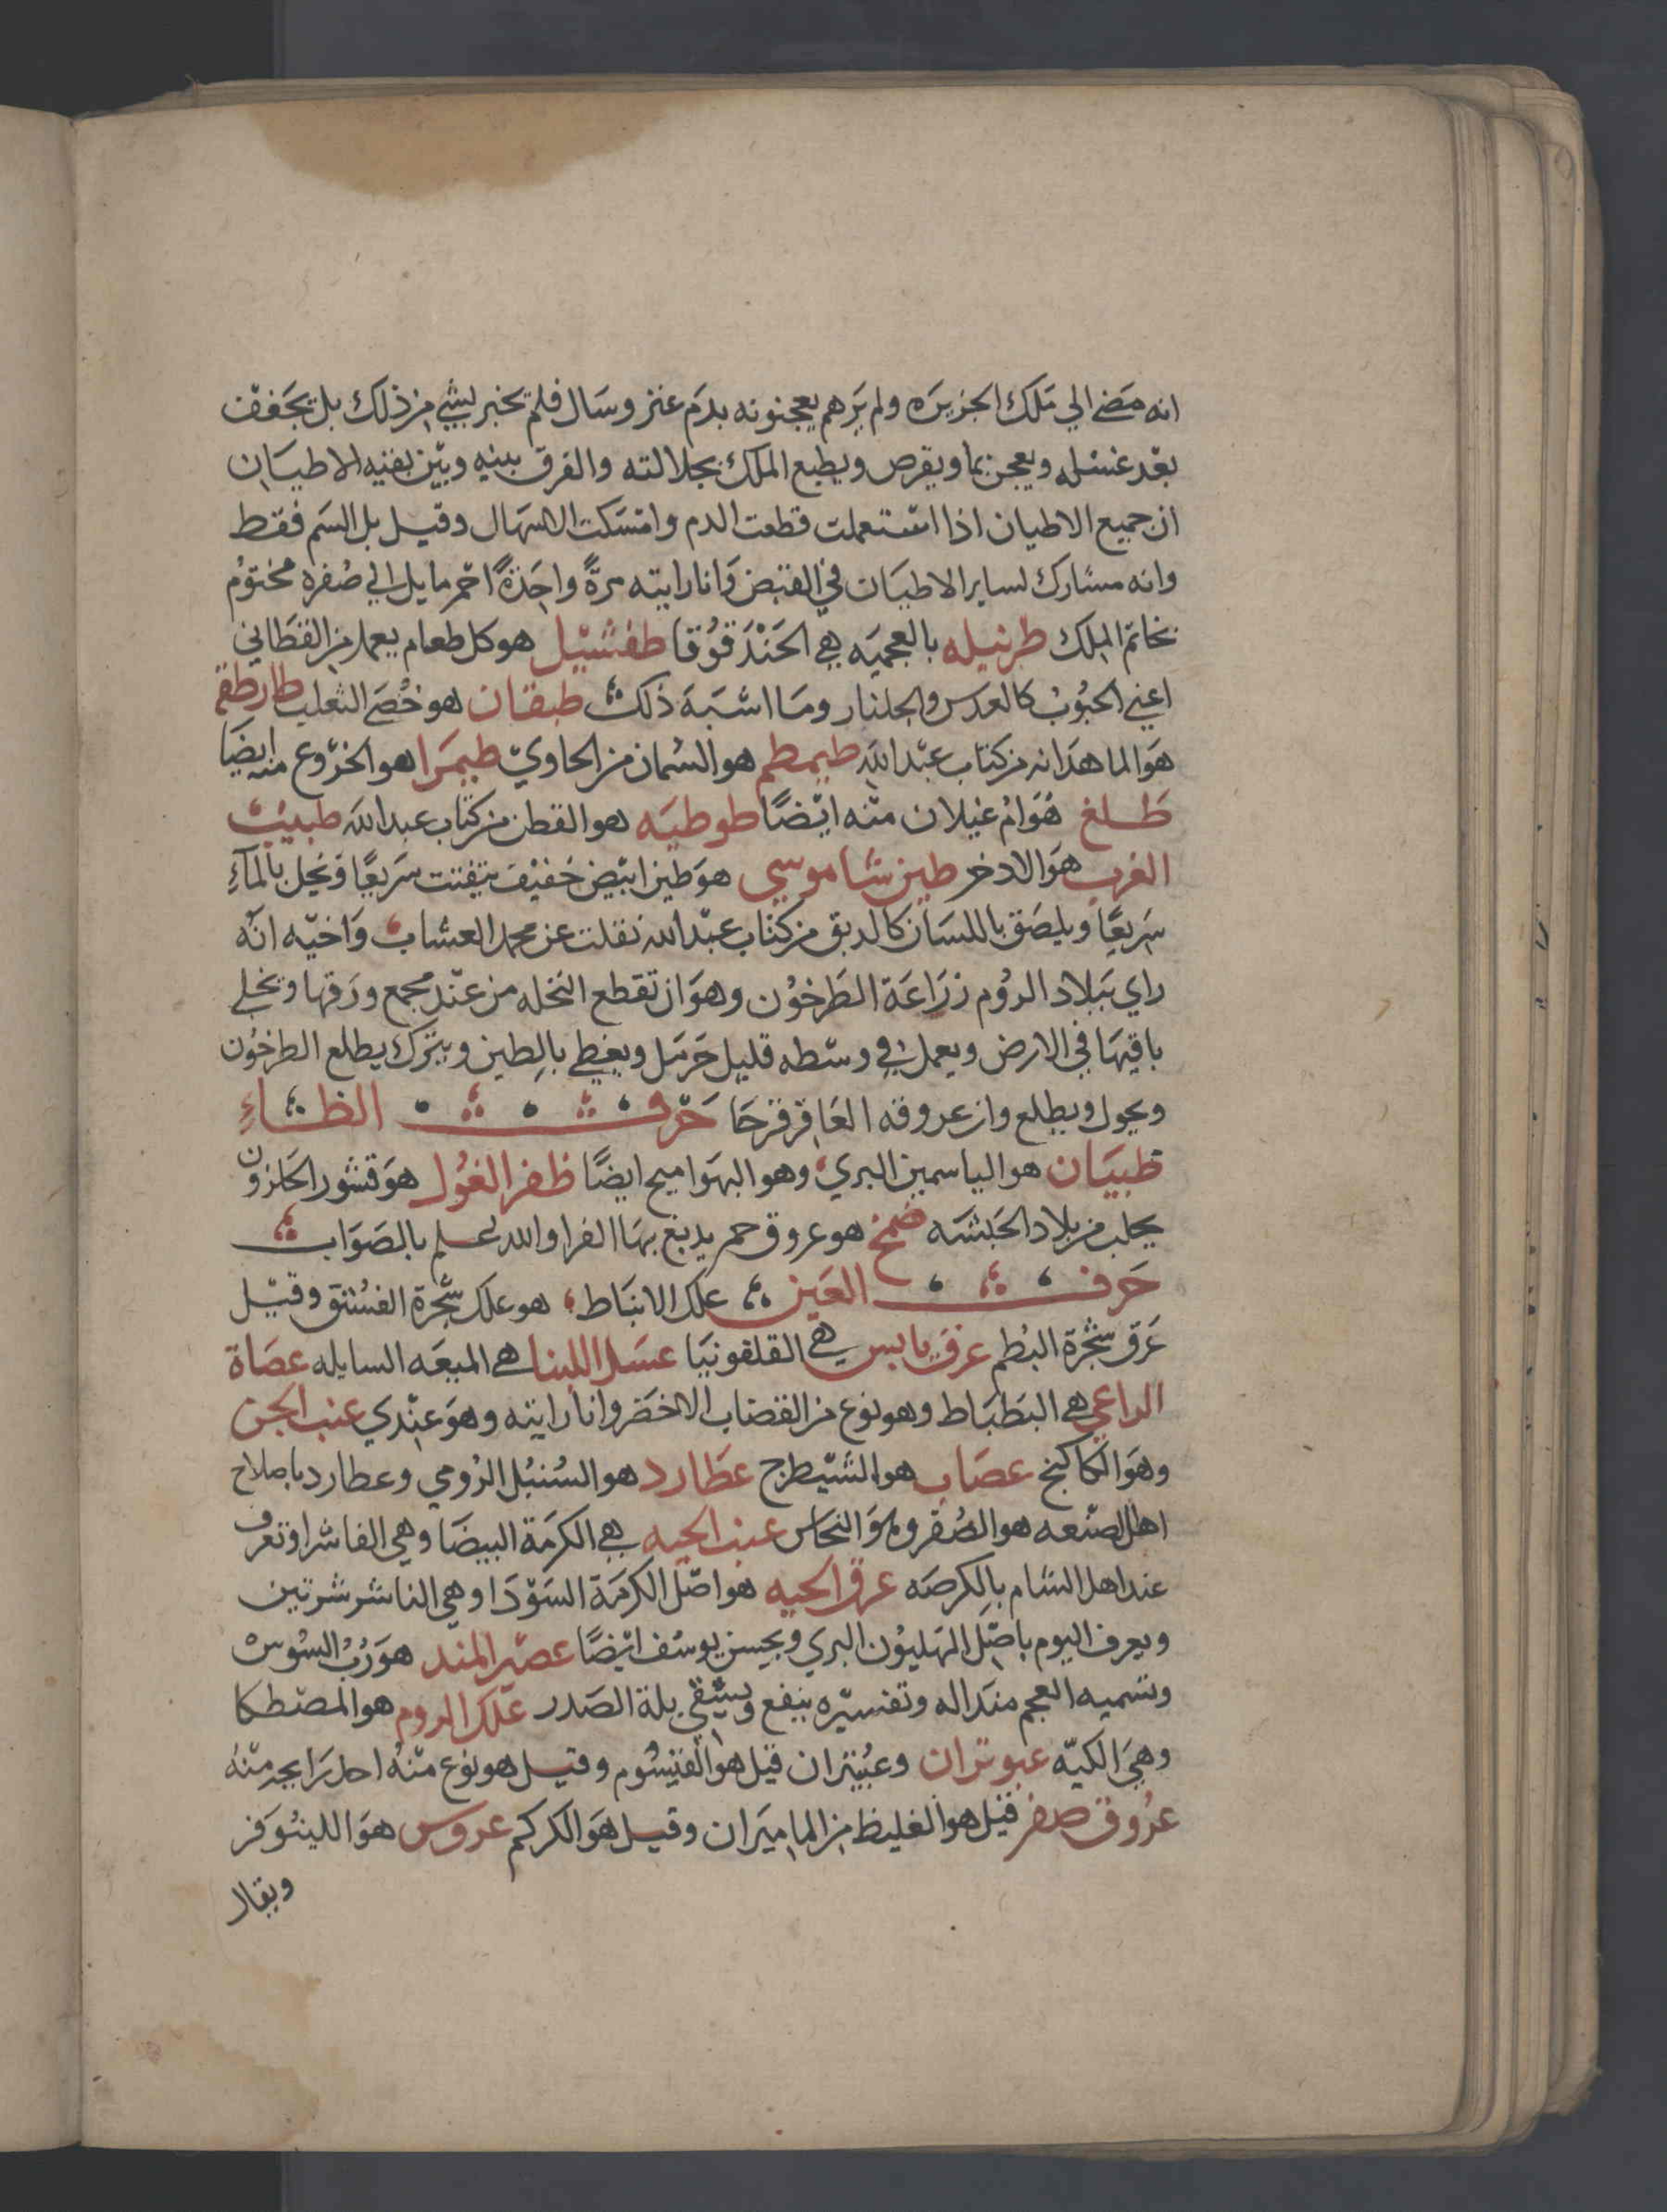 انه مضي الي تلك الجزيره ولم يرهم يعجنونه بدم عنز وسال فلم تخبر بشي من ذلك بل تجفف
بعد غسله ويعجن بما ويقرص ويطبع الملك بجلالته والفرق بينه وبين بقيه الاطيان
ان جميع الاطيان اذا استعملت قطعت الدم وامسكت الاسهال وقيل بل السم فقط
وانه مشارك لساير الاطيان في القبض وانا رايته مرة واحدة احمر مايل الي صفره مختوم
بخاتم الملك طرنيله بالعجميه هي الحندقوقا طفشيل هو كل طعام يعمل من القطاني
اعني الحبوب كالعدس والجلنار وما اشبه ذلك طبقان هو خصي الثعلب طارطقه
هو الماهدانه من كتاب عبد الله طيمطم هو السمان من الحاوي طيمرا هو الخروع منه ايضا
طلغ هو ام غيلان منه ايضا طوطيه هو القطن من كتاب عبد الله طبيب
الغرب هو الادخر طين شاموسي هو طين ابيض خفيف يتفتت سريعا وينحل بالماء
سريعا ويلصق باللسان كالدبق من كتاب عبد الله نقلت عن محمد العشاب واخيه انه
راي ببلاد الروم زراعة الطرخون وهو ان تقطع النخله من عند مجمع ورقها ويخلي
باقيها في الارض ويعمل في وسطه قليل حرمل ويغطي بالطين ويترك يطلع الطرخون
ويحول ويطلع وان عروقه العاقرقرحا حرف الظاء
ظبيان هو الياسمين البري وهو البهواميج ايضا ظفر الغول هو قشور الحلزون
يجلب من بلاد الحبشه ضمخ هو عروق حمر يدبغ بها الفرا والله يعلم بالصواب
حرف العين علك الانباط هو علك شجرة الفستق وقيل
عرق شجرة البطم عرق يابس هي القلقونيا عسل اللبنا هي الميعه السايله عصاة
الراعي هي البطباط وهو نوع من القضاب الاخضر وانا رايته وهو عندي عنب الجن
وهو الكاكنج عصاب هو الشيطرج عطارد هو السنبل الرومي وعطارد باصلاح
اهل الصنعه هو الصفر وهو النحاس عنب الحيه هي الكرمة البيضا وهي الفاشرا وتعرف
عند اهل الشام بالكرصه عرق الحيه هو اصل الكرمة السودا وهي الفاشرشرتين
ويعرف اليوم باصل الهليون البري وبحسن يوسف ايضا عصير المند هو رب السوس
وتسميه العجم منداله وتفسيره ينفع ويشقي بلة الصدر علك الروم هو المصطكا
وهي الكيه عبوثران وعبيثران قيل هو القيسوم وقيل هو نوع منه احد رايجه منه
عروق صفر قيل هو الغليظ من الماميران وقيل هو الكركم عروس هو اللينوفر
ويقال